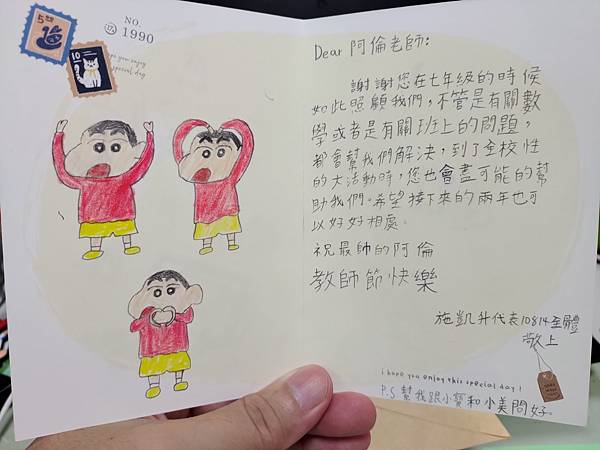 5
NO.
1990
10
Dear 阿倫老師:
謝謝您在七年級的時候
如此照顧我們，不管是有關數
學或者是有關班上的問題，
都會幫我們解決，到了全校性
的大活動時，您也會盡可能的幫
助我們。希望接下來的兩年也可
以好好相處。
祝最帥的阿倫
教師節快樂
施凱升代表10814全體
敬上
i hope you enjoy this special day!
P.S 幫我跟小寶和小美問好